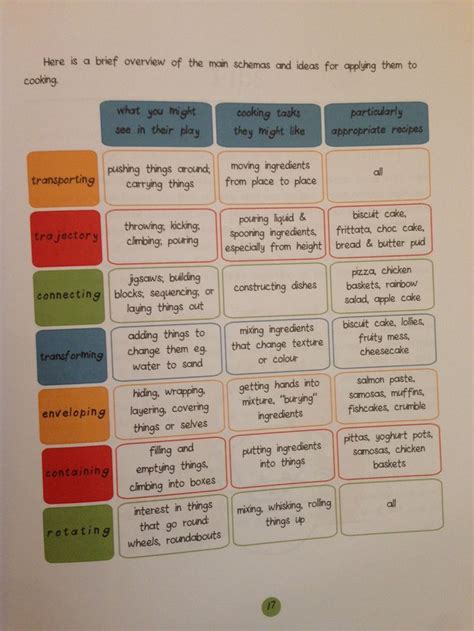 Here is a brief overview of the main schemas and ideas for applying them to
cooking.
what you might
see in their play
cooking tasks
they might like
particularly
appropriate recipes
transporting
pushing things around;
carrying things
moving ingredients
from place to place
all
trajectory
throwing; kicking;
climbing; pouring
pouring liquid &
spooning ingredients,
especially from height
biscuit cake,
frittata, choc cake,
bread & butter pud
connecting
jigsaws; building
blocks; sequencing; or
laying things out
constructing dishes
pizza, chicken
baskets, rainbow
salad, apple cake
transforming
adding things to
change them eg.
water to sand
mixing ingredients
that change texture
or colour
biscuit cake, lollies,
fruity mess,
cheesecake
enveloping
hiding, wrapping,
layering, covering
things or selves
getting hands into
mixture, "burying"
ingredients
salmon paste,
samosas, muffins,
fishcakes, crumble
containing
filling and
emptying things,
climbing into boxes
putting ingredients
into things
pittas, yoghurt pots,
samosas, chicken
baskets
rotating
interest in things
that go round:
wheels, roundabouts
mixing, whisking, rolling
things up
all
17